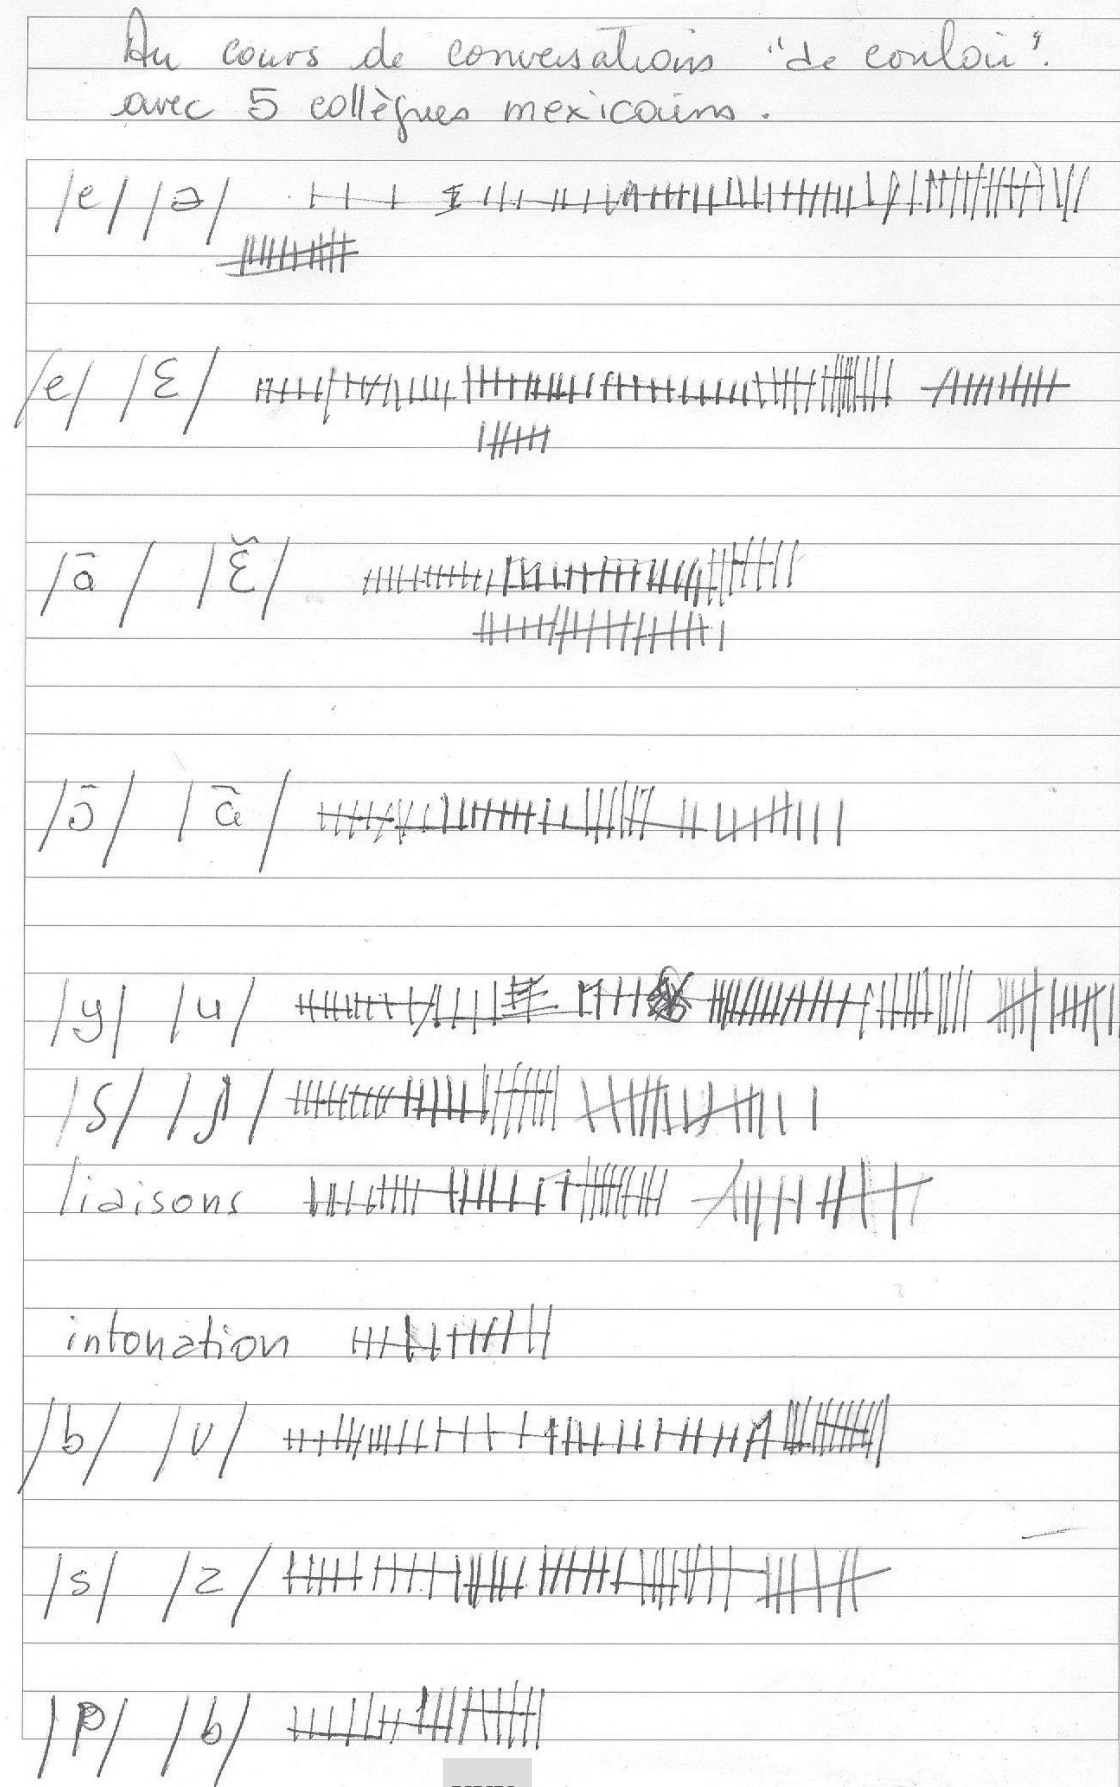 Au cours de conversations "de couloir".
avec 5 collègues mexicains.
/e/ /ə/
/e/ /ɛ/
/ã/ /ɛ̃/
/ɔ̃/ /ã/
/y/ /u/
/S/ /ʃ/
liaisons
intonation
/b/ /v/
/s/ /z/
/p/ /b/